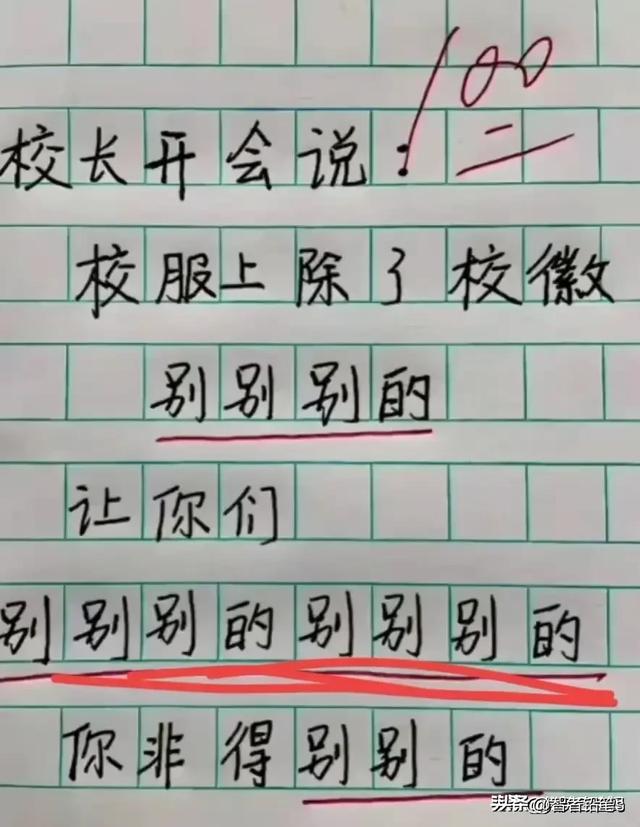 100
校长开会说:
校服上除了校徽
别别别的
让你们
别别别的别别别的
你非得别别的
头条@智者铅笔吗